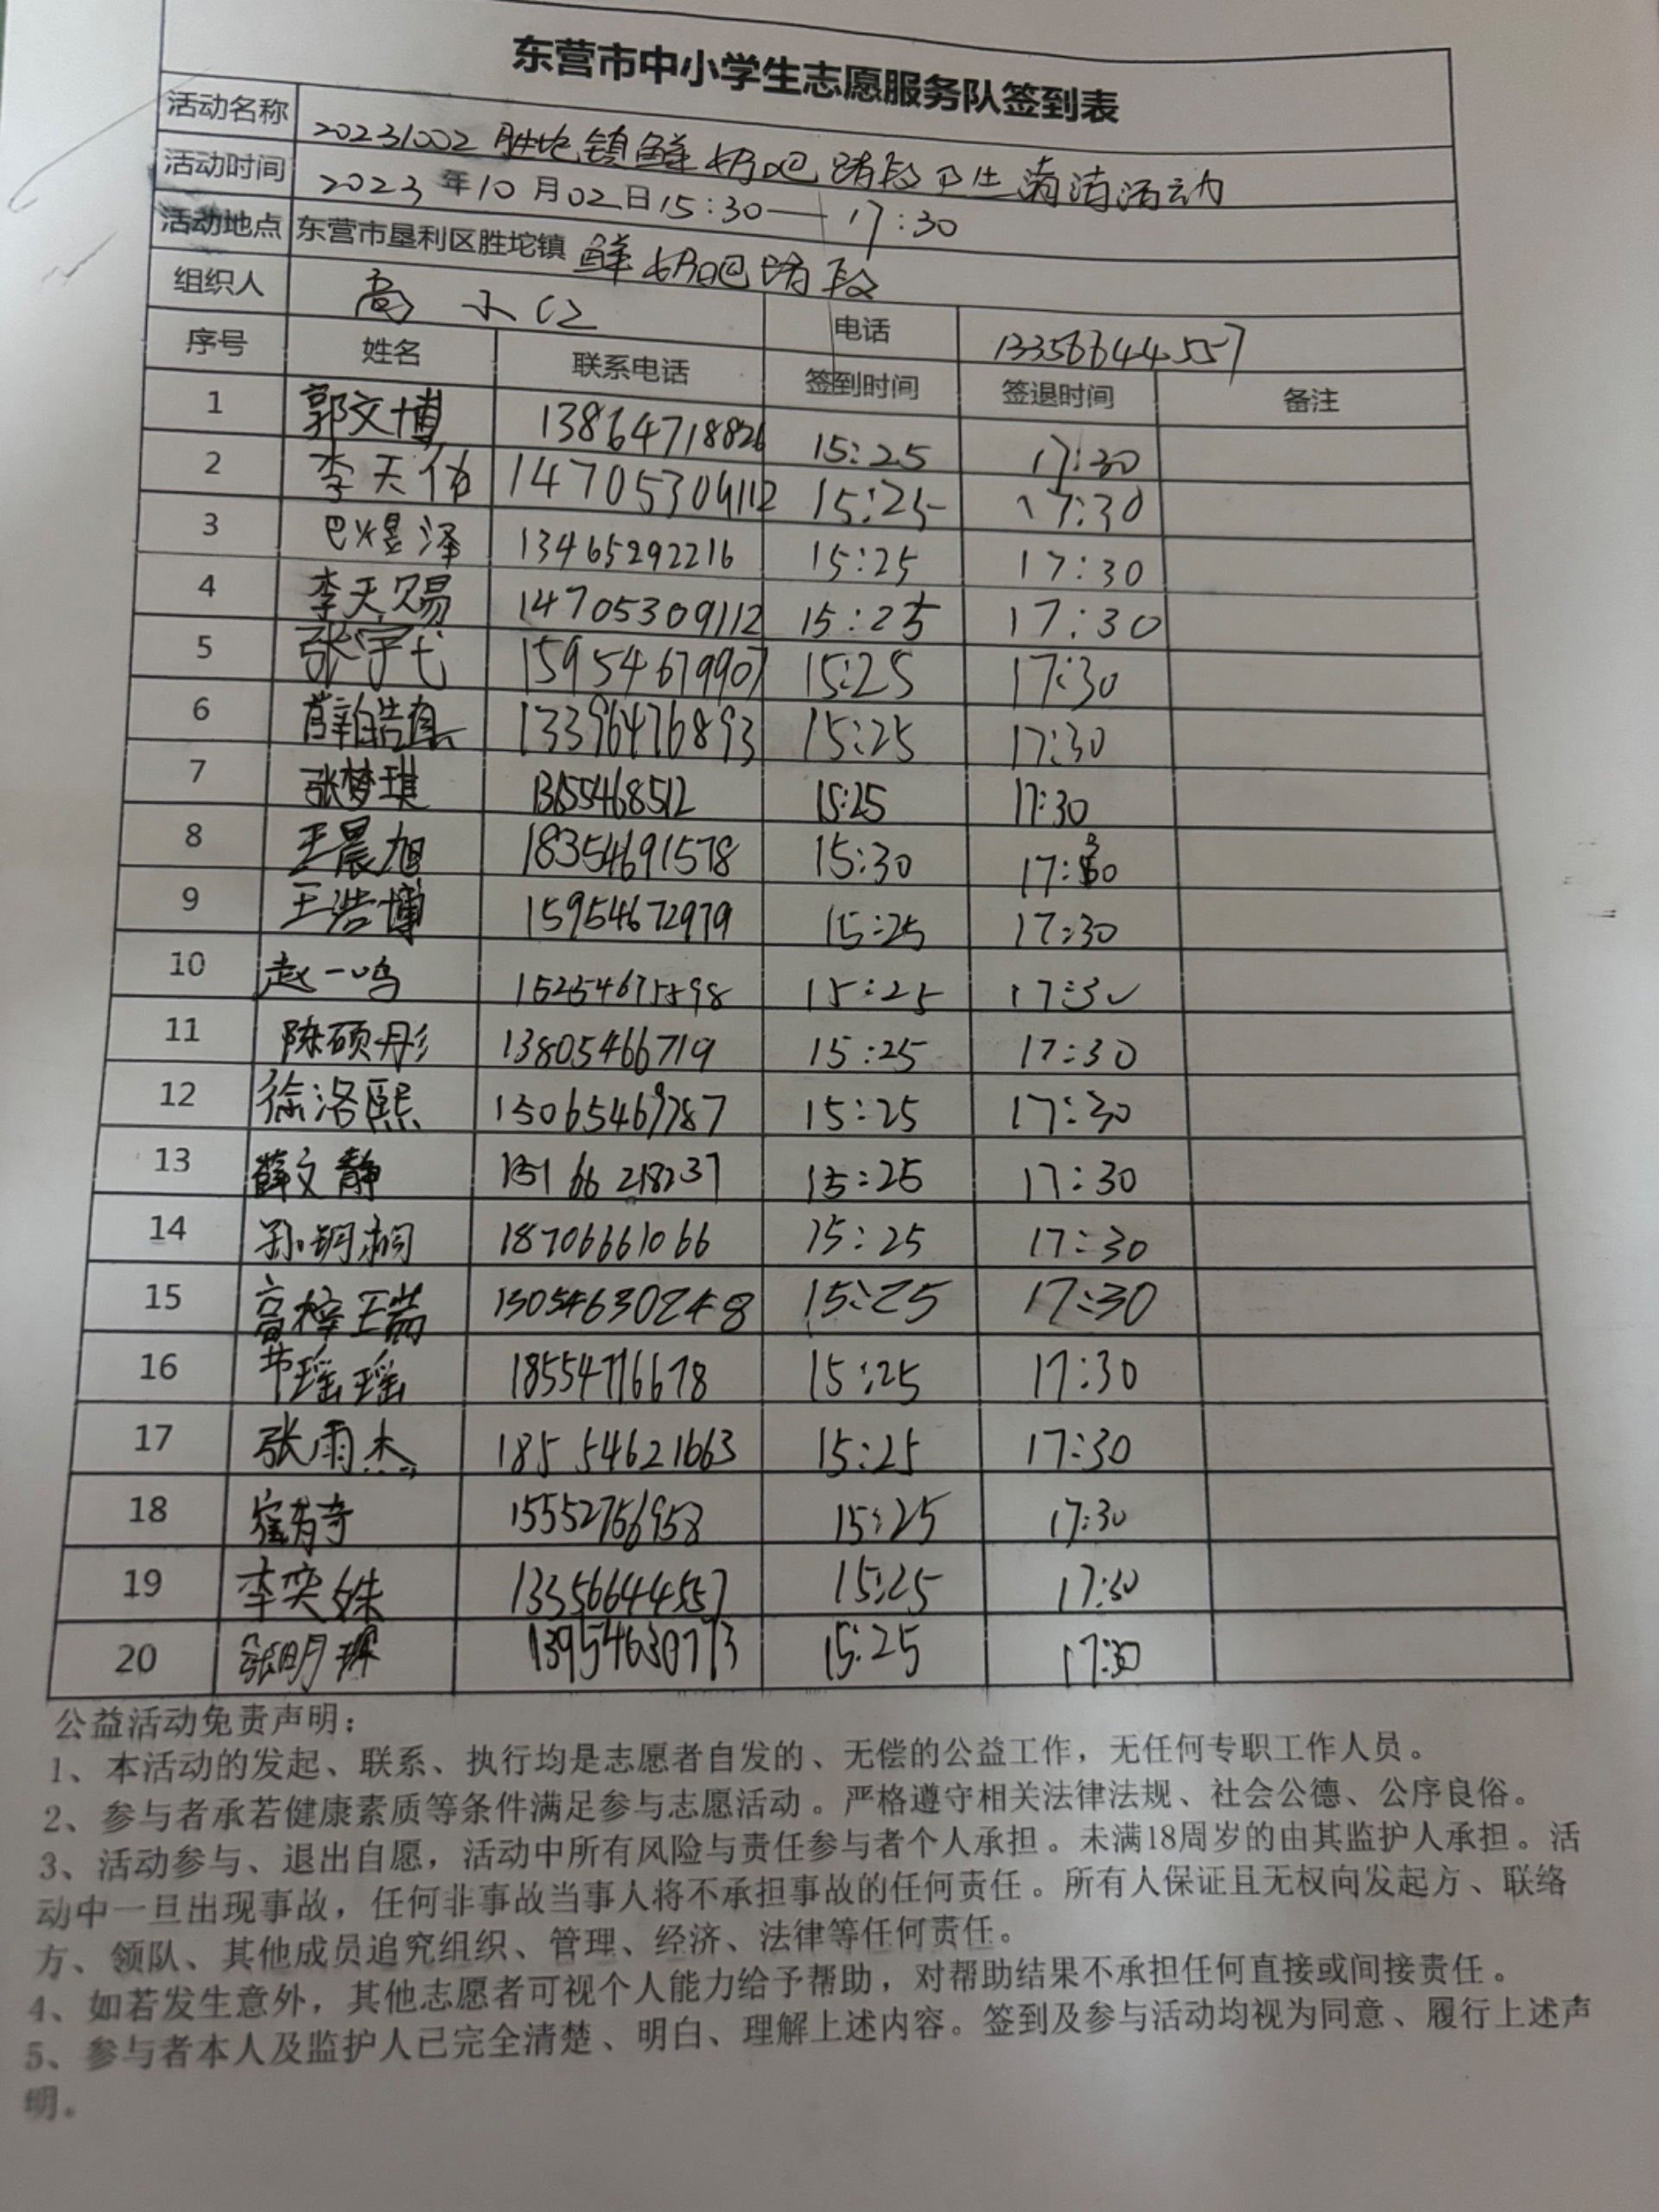 东营市中小学生志愿服务队签到表
活动名称 20231002胜坨镇鲜奶吧路段卫生清洁活动
活动时间 2023年10月02日15:30—17:30
活动地点 东营市垦利区胜坨镇 鲜奶吧路段
组织人 高小红 电话 13356644557
序号 姓名 联系电话 签到时间 签退时间 备注
1 郭文博 13864718826 15:25 17:30
2 李天佑 14705309112 15:25 17:30
3 巴煜泽 13465292216 15:25 17:30
4 李天赐 14705309112 15:25 17:30
5 张宇弋 15954679907 15:25 17:30
6 薛皓真 13396476893 15:25 17:30
7 张梦琪 13655468512 15:25 17:30
8 王晨旭 18354691578 15:30 17:30
9 王浩博 15954672979 15:25 17:30
10 赵一鸣 15:25 17:30
11 陈硕彤 13805466719 15:25 17:30
12 徐洛熙 15065469787 15:25 17:30
13 薛文静 15166218237 15:25 17:30
14 孙 18706661066 15:25 17:30
15 高梓瑞 15054630248 15:25 17:30
16 瑶瑶 18554716678 15:25 17:30
17 张雨杰 18554621663 15:25 17:30
18 15552756958 15:25 17:30
19 李奕姝 13356644557 15:25 17:30
20 张明 13954630773 15:25 17:30
公益活动免责声明：
1、本活动的发起、联系、执行均是志愿者自发的、无偿的公益工作，无任何专职工作人员。
2、参与者承若健康素质等条件满足参与志愿活动。严格遵守相关法律法规、社会公德、公序良俗。
3、活动参与、退出自愿，活动中所有风险与责任参与者个人承担。未满18周岁的由其监护人承担。活
动中一旦出现事故，任何非事故当事人将不承担事故的任何责任。所有人保证且无权向发起方、联络
方、领队、其他成员追究组织、管理、经济、法律等任何责任。
4、如若发生意外，其他志愿者可视个人能力给予帮助，对帮助结果不承担任何直接或间接责任。
5、参与者本人及监护人已完全清楚、明白、理解上述内容。签到及参与活动均视为同意、履行上述声
明。